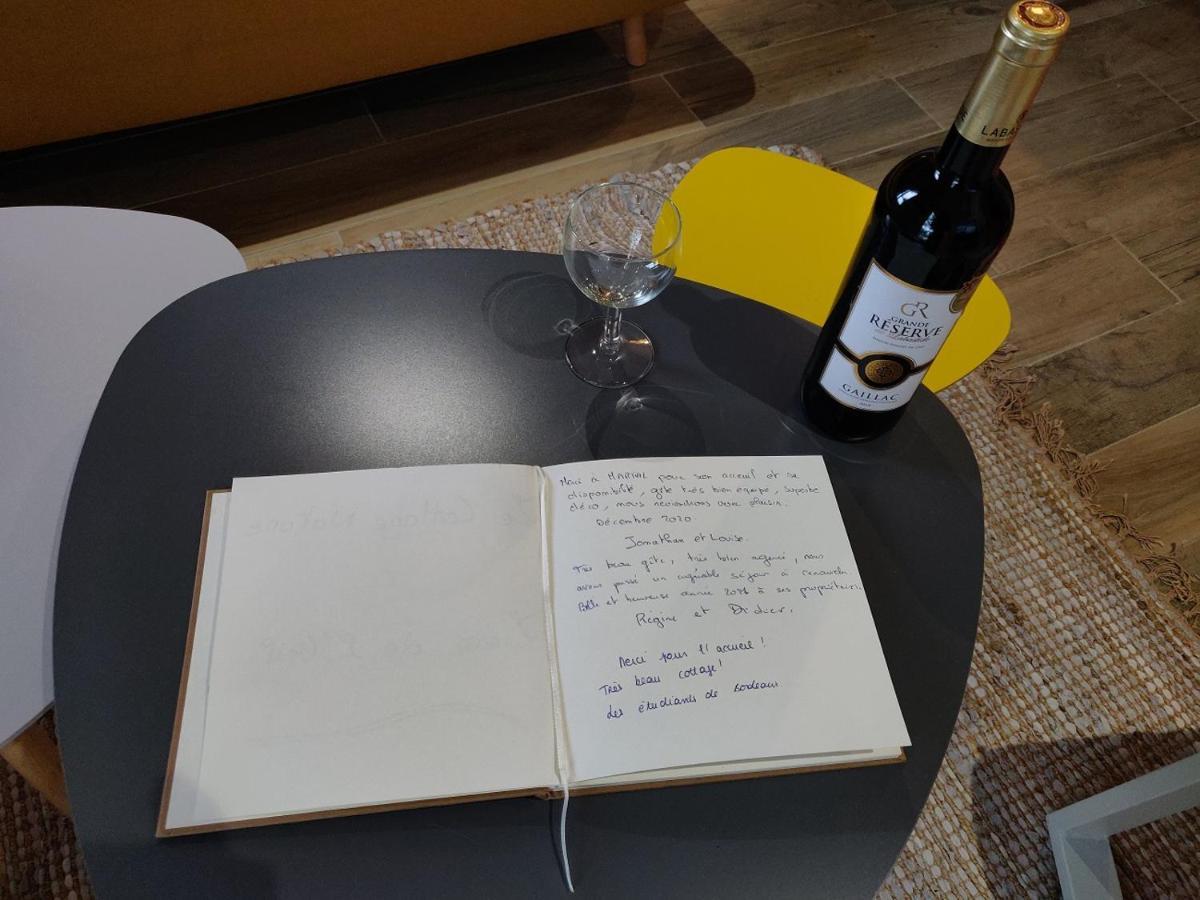 LABA
GR
GRANDE
RÉSERVE
GAILLAC
Merci à MARTIAL pour son accueil et sa
disponibilité, gîte très bien équipé, superbe
déco, nous reviendrons avec plaisir.
Décembre 2020.
Jonathan et Louise.
Très beau gîte, très bien agencé, nous
avons passé un agréable séjour à
Belle et heureuse année à ses propriétaires.
Régine et Didier.
Merci pour l'accueil !
Très beau cottage !
Les étudiants de Bordeaux